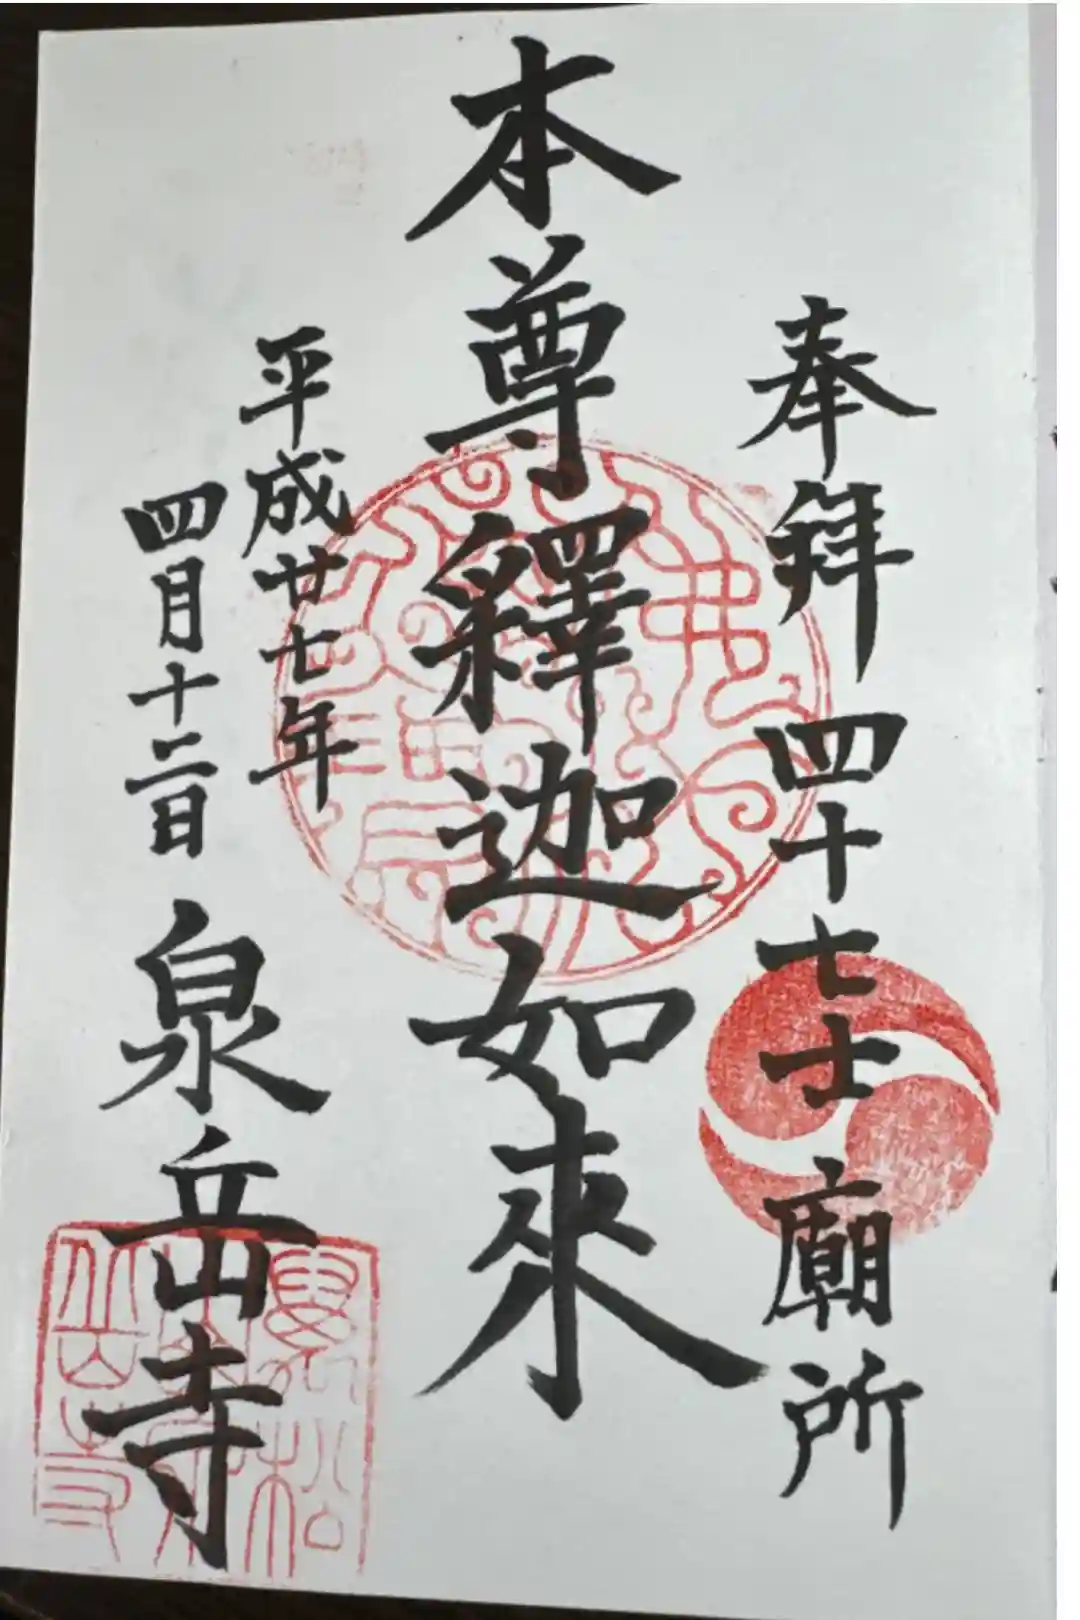 奉拜 四十七士廟所
本尊釋迦如來
平成廿七年
四月十二日
泉岳寺